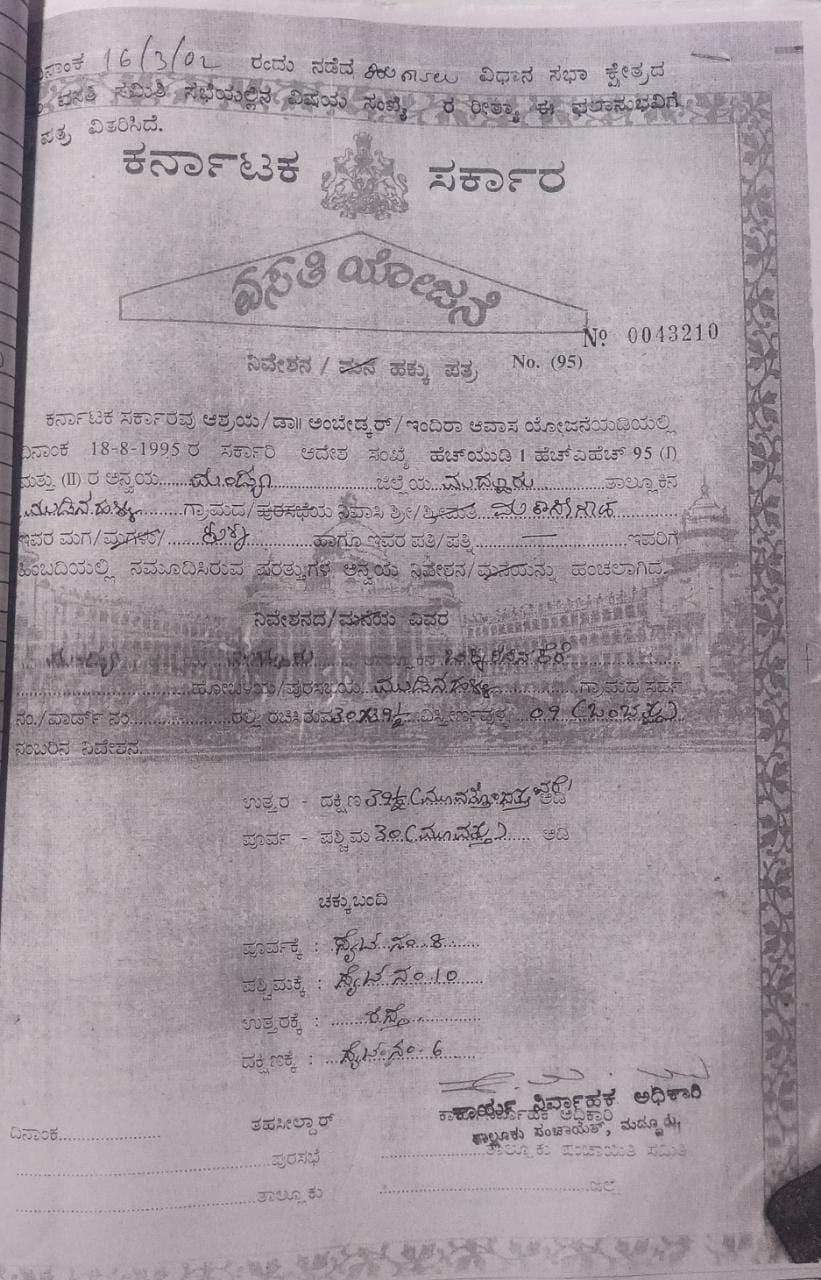 ದಿನಾಂಕ 16/3/02 ರಂದು ನಡೆದ ವಿಧಾನ ಸಭಾ ಕ್ಷೇತ್ರದ
ವಸತಿ ಸಮಿತಿ ಸಭೆಯಲ್ಲಿನ ವಿಷಯ ಸಂಖ್ಯೆ ರ ರೀತ್ಯಾ ಈ ಫಲಾನುಭವಿಗೆ
ಪತ್ರ ವಿತರಿಸಿದೆ.
ಕರ್ನಾಟಕ ಸರ್ಕಾರ
ವಸತಿ ಯೋಜನೆ
No 0043210
ನಿವೇಶನ / ಮನೆ ಹಕ್ಕು ಪತ್ರ No. (95)
ಕರ್ನಾಟಕ ಸರ್ಕಾರವು ಆಶ್ರಯ/ಡಾ|| ಅಂಬೇಡ್ಕರ್/ಇಂದಿರಾ ಆವಾಸ ಯೋಜನೆಯಡಿಯಲ್ಲಿ
ದಿನಾಂಕ 18-8-1995 ರ ಸರ್ಕಾರಿ ಆದೇಶ ಸಂಖ್ಯೆ ಹೆಚ್‌ಯುಡಿ 1 ಹೆಚ್‌ಎಹೆಚ್ 95 (I)
ಮತ್ತು (II) ರ ಅನ್ವಯ ಮಂಡ್ಯ ಜಿಲ್ಲೆಯ ಮದ್ದೂರು ತಾಲ್ಲೂಕಿನ
ಗ್ರಾಮದ/ಪುರಸಭೆಯ ನಿವಾಸಿ ಶ್ರೀ/ಶ್ರೀಮತಿ
ಇವರ ಮಗ/ಮಗಳು/ ಹಾಗೂ ಇವರ ಪತಿ/ಪತ್ನಿ — ಇವರಿಗೆ
ಹಿಂಬದಿಯಲ್ಲಿ ನಮೂದಿಸಿರುವ ಷರತ್ತುಗಳ ಅನ್ವಯ ನಿವೇಶನ/ಮನೆಯನ್ನು ಹಂಚಲಾಗಿದೆ.
ನಿವೇಶನದ/ಮನೆಯ ವಿವರ
ಮಂಡ್ಯ ಮದ್ದೂರು
ಹೋಬಳಿಯ/ಪುರಸಭೆಯ ಗ್ರಾಮದ ಸರ್ವೆ
ನಂ./ವಾರ್ಡ್ ನಂ. ರಲ್ಲಿ ರಚಿಸಿರುವ 30x39½ ವಿಸ್ತೀರ್ಣವುಳ್ಳ 09 (ಒಂಭತ್ತು)
ನಂಬರಿನ ನಿವೇಶನ.
ಉತ್ತರ - ದಕ್ಷಿಣ 39½ (ಮೂವತ್ತೊಂಭತ್ತುವರೆ) ಅಡಿ
ಪೂರ್ವ - ಪಶ್ಚಿಮ 30 (ಮೂವತ್ತು) ಅಡಿ
ಚಕ್ಕುಬಂದಿ
ಪೂರ್ವಕ್ಕೆ : ಸೈಟ್ ನಂ. 8
ಪಶ್ಚಿಮಕ್ಕೆ : ಸೈಟ್ ನಂ. 10
ಉತ್ತರಕ್ಕೆ : ರಸ್ತೆ
ದಕ್ಷಿಣಕ್ಕೆ : ಸೈಟ್ ನಂ. 6
ಕಾರ್ಯ ನಿರ್ವಾಹಕ ಅಧಿಕಾರಿ
ದಿನಾಂಕ ತಹಸೀಲ್ದಾರ್ ಕಾರ್ಯನಿರ್ವಾಹಕ ಅಧಿಕಾರಿ
ತಾಲ್ಲೂಕು ಪಂಚಾಯತ್, ಮದ್ದೂರು
ಪುರಸಭೆ ತಾಲ್ಲೂಕು ಪಂಚಾಯತಿ ಸಮಿತಿ
ತಾಲ್ಲೂಕು ಜಿಲ್ಲೆ